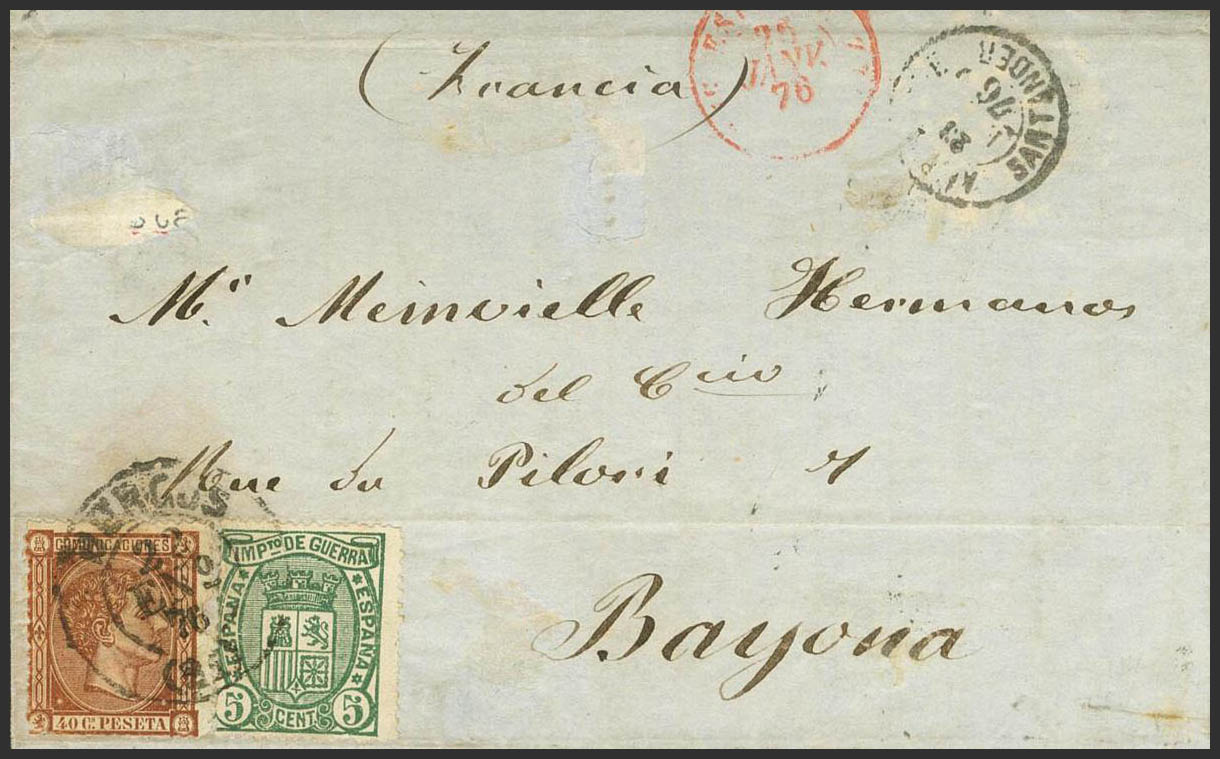 (Francia)
25
JANV
76
SANTANDER
23
76
Mr. Meinvielle Hermanos
del Ccio
Rue du Pilori 7
Bayona
BURGOS
76
COMUNICACIONES
40 C. PESETA
IMPTO DE GUERRA
ESPAÑA
ESPAÑA
5 CENT. 5